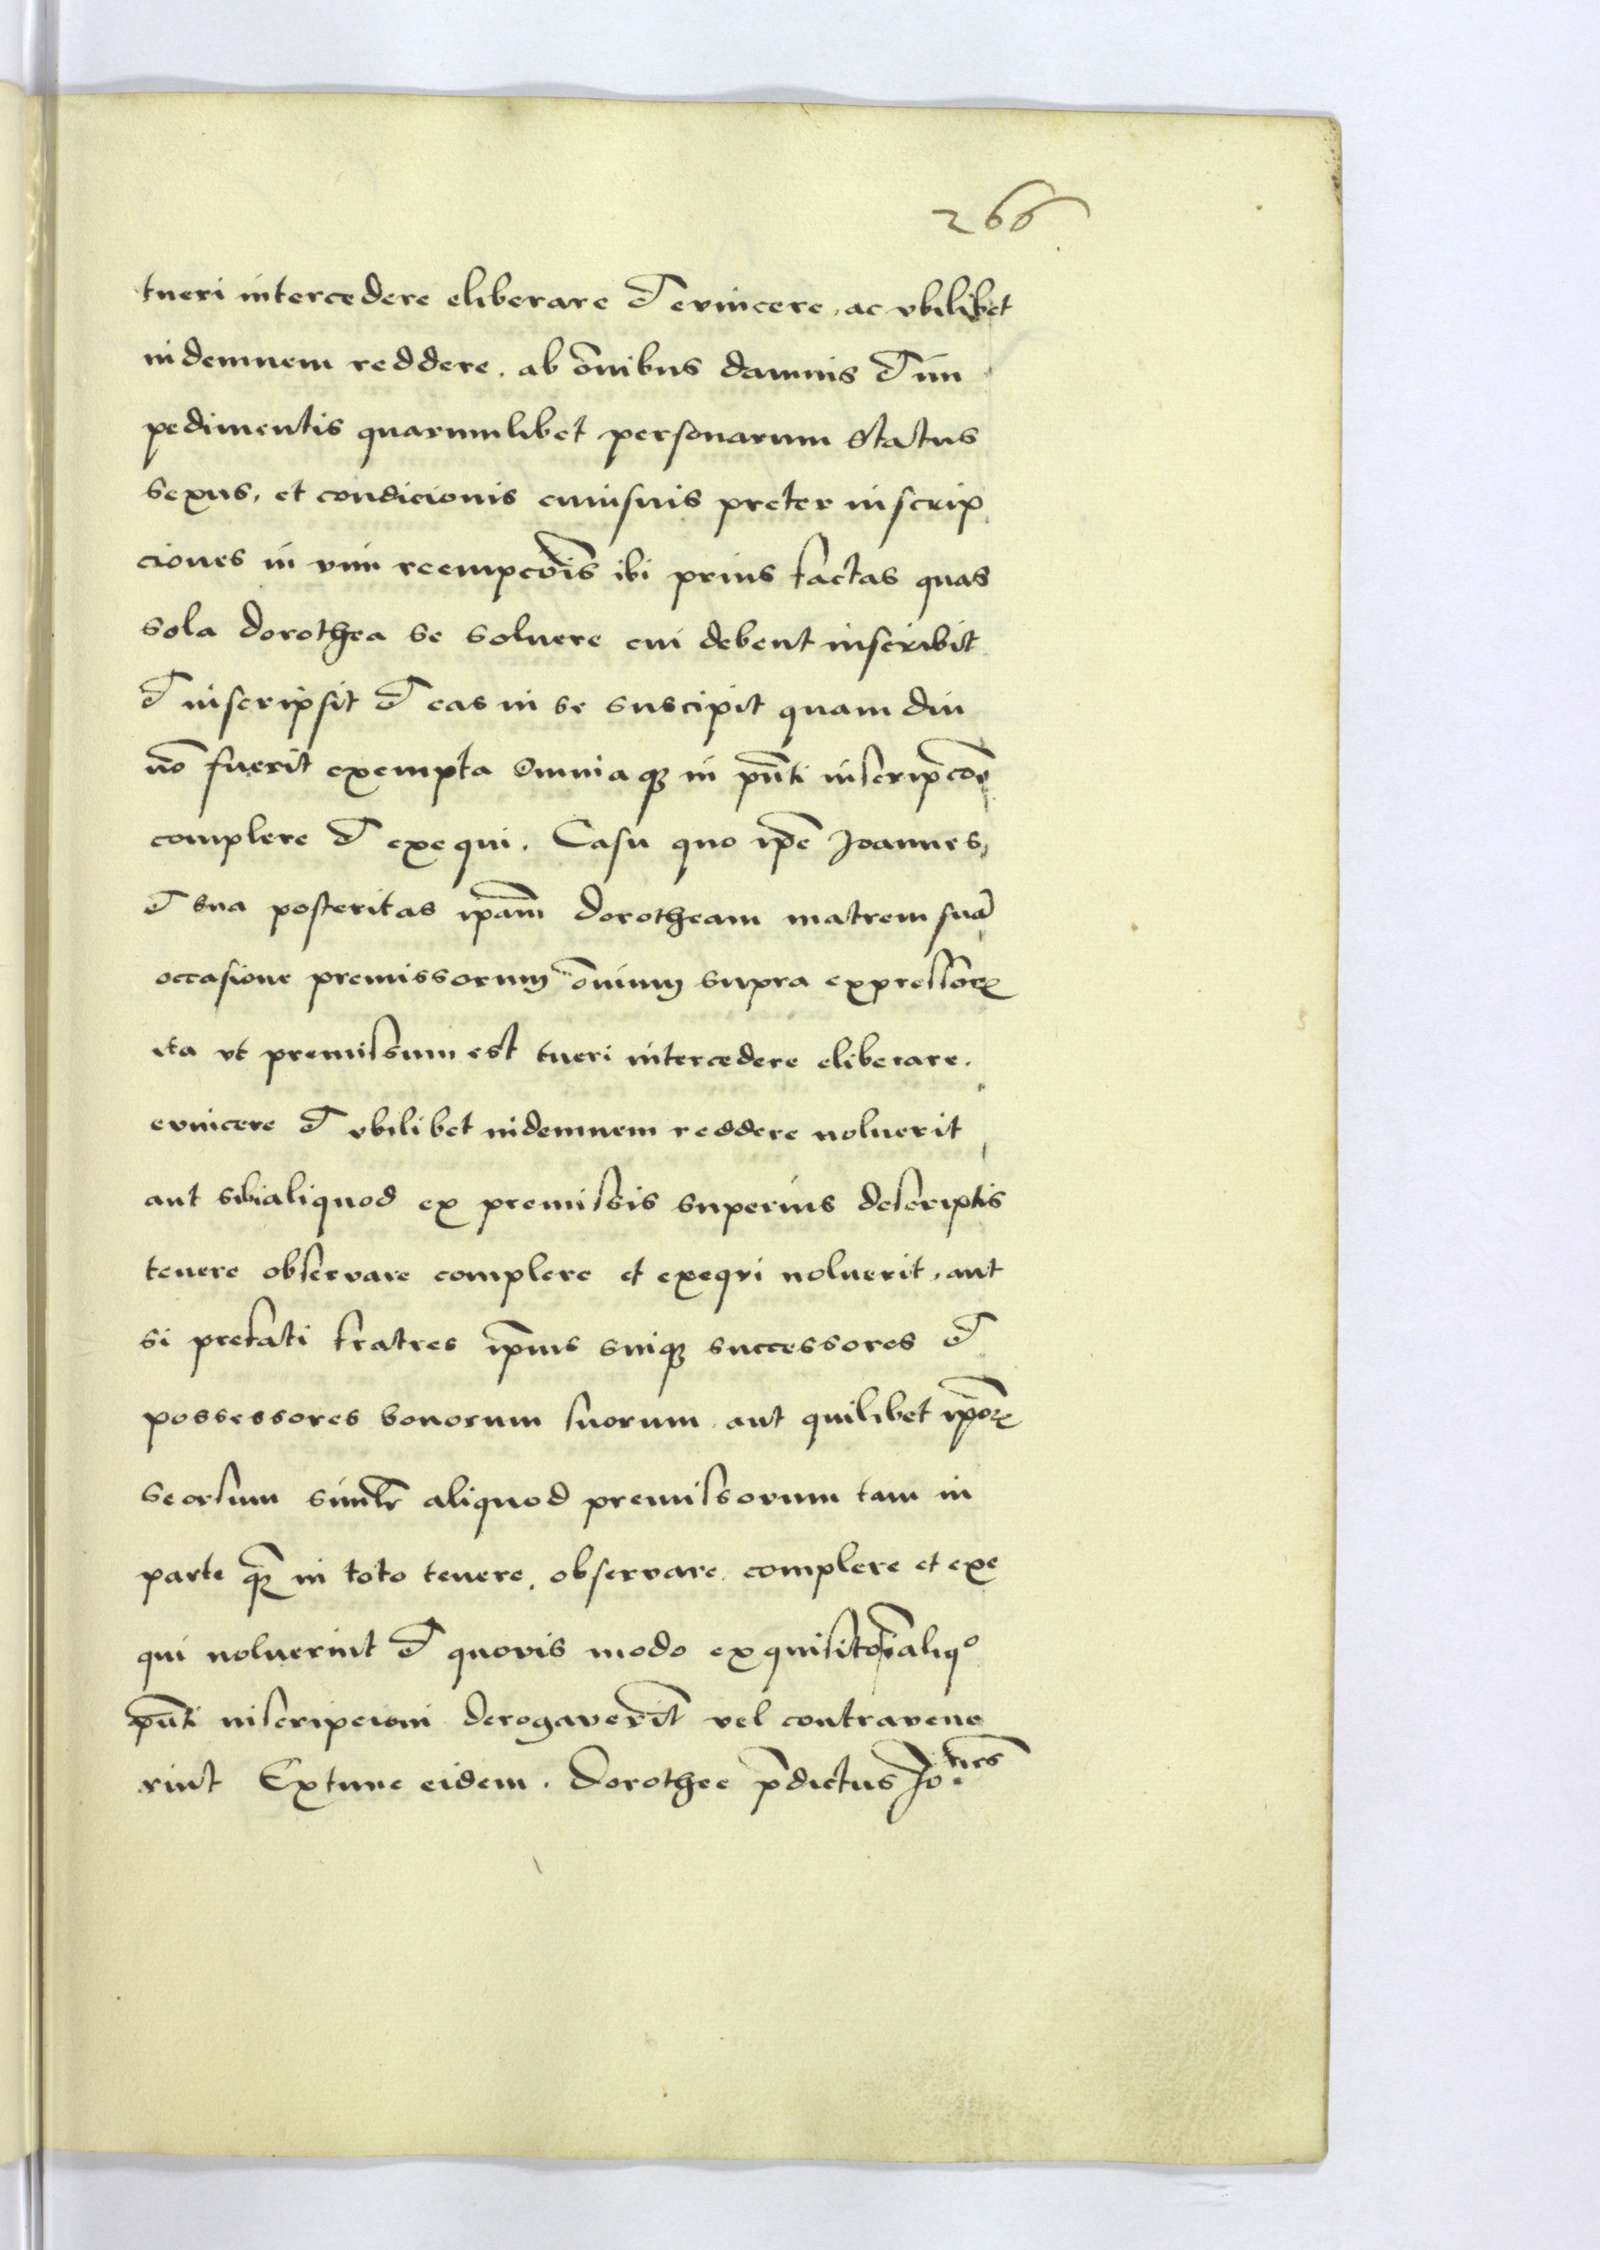 266
tueri intercedere eliberare et evincere, ac vbilibet
indemnem reddere. ab om̅ibus damnis et im
pedimentis quarumlibet personarum status
sexus, et condicionis cuiusuis preter inscrip
ciones in vim reempcōis ibi prius factas quas
sola dorothea se soluere cui debent inscribit
et inscripsit et eas in se suscipit quam diu
nō fuerit exempta Omniaq3 in pn̅ti inscripcōe
complere et exequi. Casu quo ip̅e Joannes,
et sua posteritas ip̅am dorotheam matrem suā
occasione premissorum om̅ium supra expressorꝝ
ita vt premissum est tueri intercedere eliberare.
evincere et vbilibet indemnem reddere noluerit
aut sibi aliquod ex premissis superius descriptis
tenere observare complere et exeqvi noluerit, aut
si prefati fratres ip̅ius suiq3 successores et
possessores bonorum suorum aut quilibet ip̅orꝝ
seorsum simlr̅ aliquod premissorum tam in
parte q3 in toto tenere, observare complere et exe
qui noluerint et quovis modo exquisito aliqº
pn̅ti inscripcioni derogaverit vel contravene
rint Extunc eidem. Dorothee p̅dictus Jo.nes